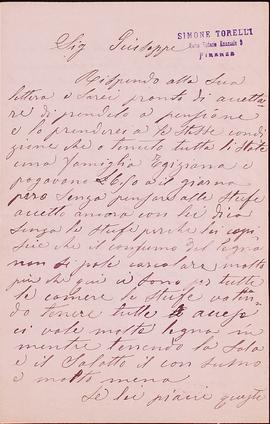 SIMONE TORELLI
FIRENZE
Sig Guiseppe
Rispondo alla sua
lettera e sarei pronto di accetta
re di prenderlo a pensione
e lo prenderei a le stesse condi
zione che o tenuto tutta l'estate
una famiglia Egiziana e
pagavano al giorno
pero senza pensare alle stufe
accetto ancora con lei dico
senza le stufe perche lei capi
sce che il consumo del legna
non si pole carcolare molto
piu che qui ci sono per tutte
le camere le stufe volen
do tenere tutte accese
ci vole molta legna in
mentre tenendo la sala
e il salotto il consumo
e molto meno
Se lei piacie queste